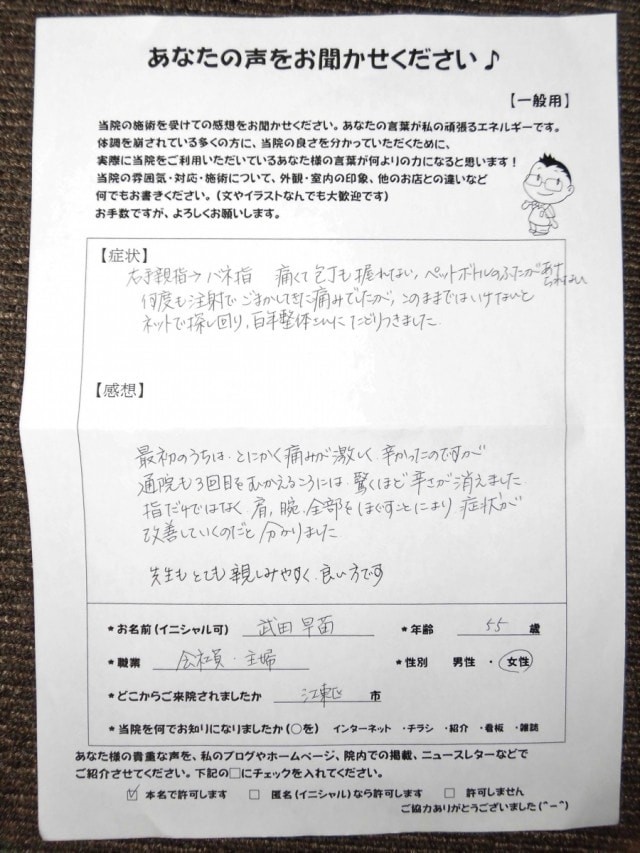 あなたの声をお聞かせください♪
【一般用】
当院の施術を受けての感想をお聞かせください。あなたの言葉が私の頑張るエネルギーです。
体調を崩されている多くの方に、当院の良さを分かっていただくために、
実際に当院をご利用いただいているあなた様の言葉が何よりの力になると思います！
当院の雰囲気・対応・施術について、外観・室内の印象、他のお店との違いなど
何でもお書きください。（文やイラストなんでも大歓迎です）
お手数ですが、よろしくお願いします。
【症状】
右手親指→バネ指 痛くて包丁も握れない、ペットボトルのふたがあけられない
何度も注射でごまかしてきた痛みでしたが、このままではいけないと
ネットで探し回り、百年整体さんにたどりつきました。
【感想】
最初のうちは、とにかく痛みが激しく、辛かったのですが
通院も3回目をむかえるころには、驚くほど辛さが消えました
指だけではなく、肩、腕、全部をほぐすことにより、症状が
改善していくのだと分かりました
先生もとても親しみやすく、良い方です
*お名前（イニシャル可） 武田早苗 *年齢 55 歳
*職業 会社員・主婦 *性別 男性 ・ 女性
*どこからご来院されましたか 江東区 市
*当院を何でお知りになりましたか（○を） インターネット ・チラシ ・紹介 ・看板 ・雑誌
あなた様の貴重な声を、私のブログやホームページ、院内での掲載、ニュースレターなどで
ご紹介させてください。下記の□にチェックを入れてください。
☑ 本名で許可します □ 匿名（イニシャル）なら許可します □ 許可しません
ご協力ありがとうございました(^-^)